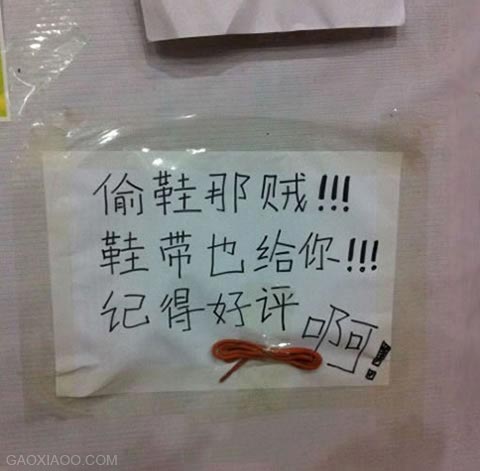 偷鞋那贼!!!
鞋带也给你!!!
记得好评啊!
GAOXIAOO.COM